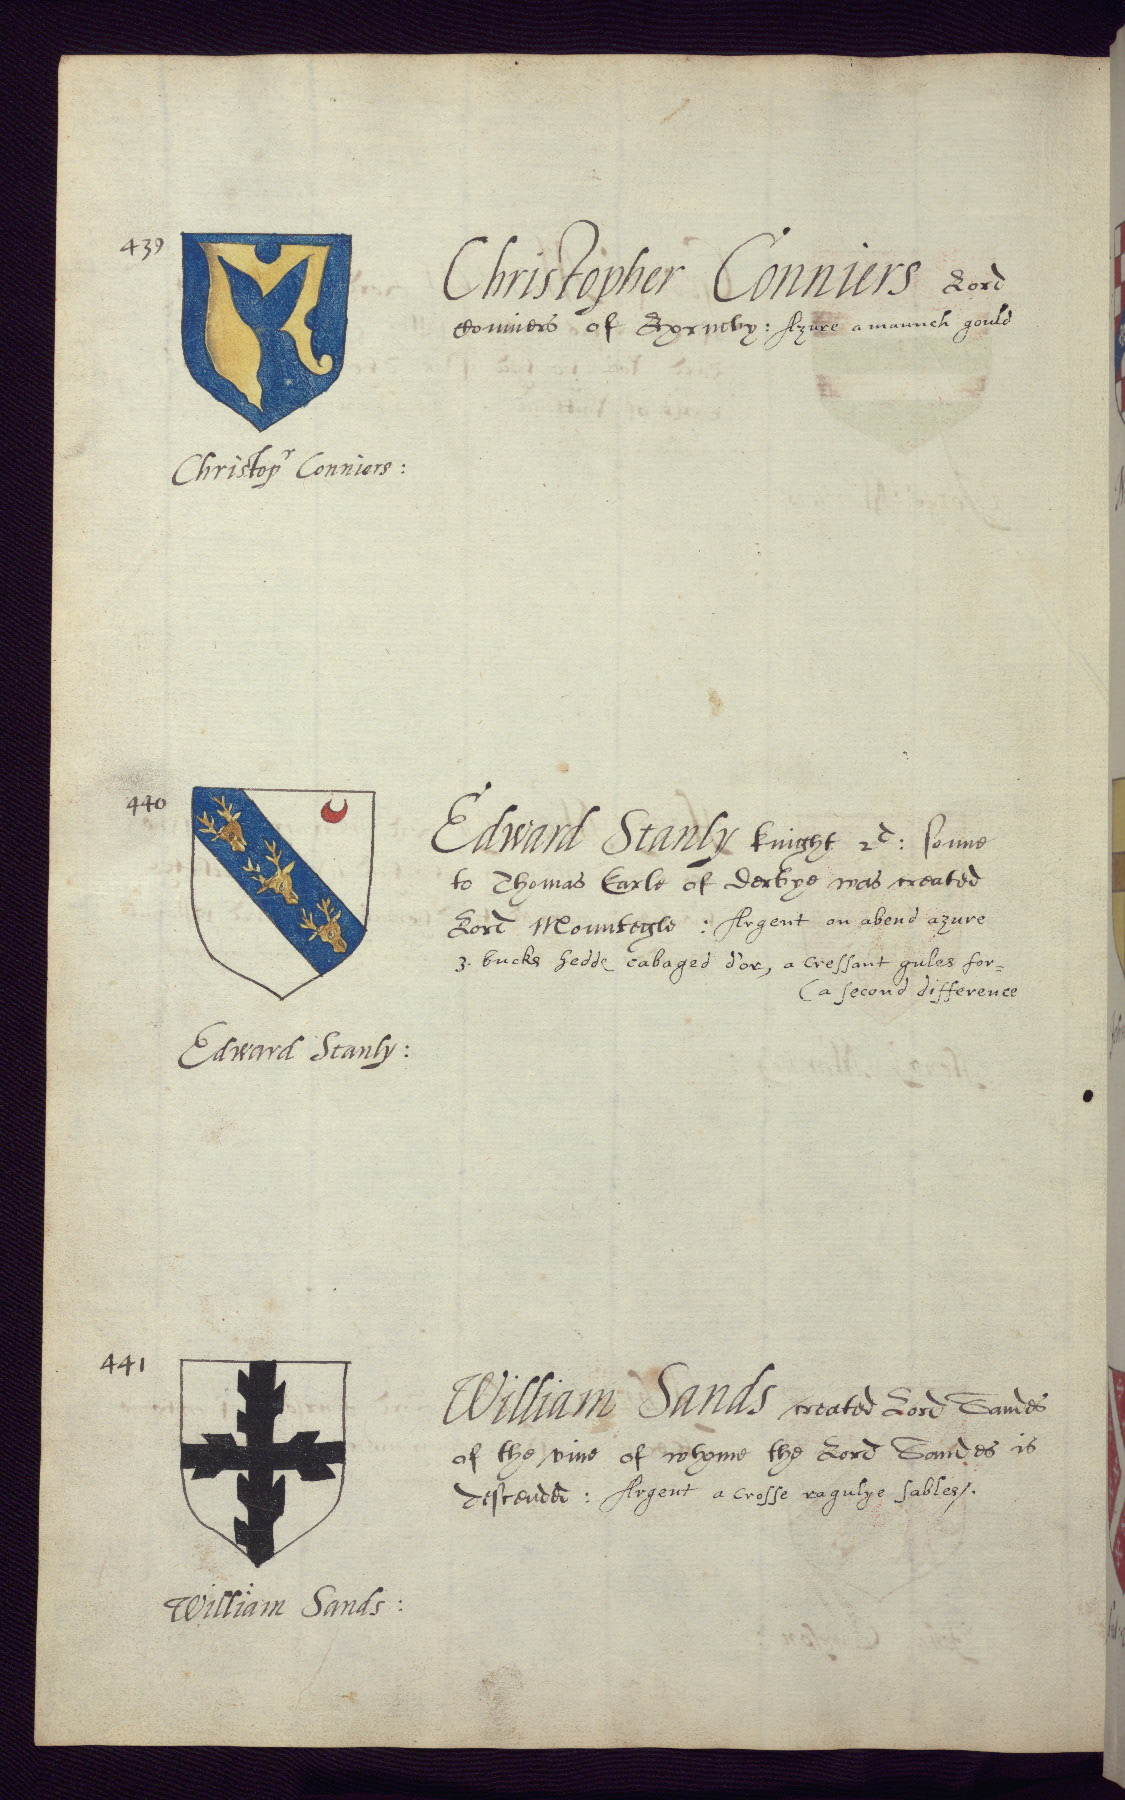 439
Christopher Conniers Lord
Conniers of Horneby: Azure a maunch gould
Christopr Conniers:
440
Edward Stanly knight 2d: sonne
to Thomas Earle of Derbye was created
Lord Mountegle : Argent on abend azure
3. bucks hedde cabaged d'or, a cressant gules for=
(a second difference
Edward Stanly:
441
William Sands created Lord Sandes
of the vine of whome the Lord Sandes is
descended : Argent a crosse ragulye sables/.
William Sands: